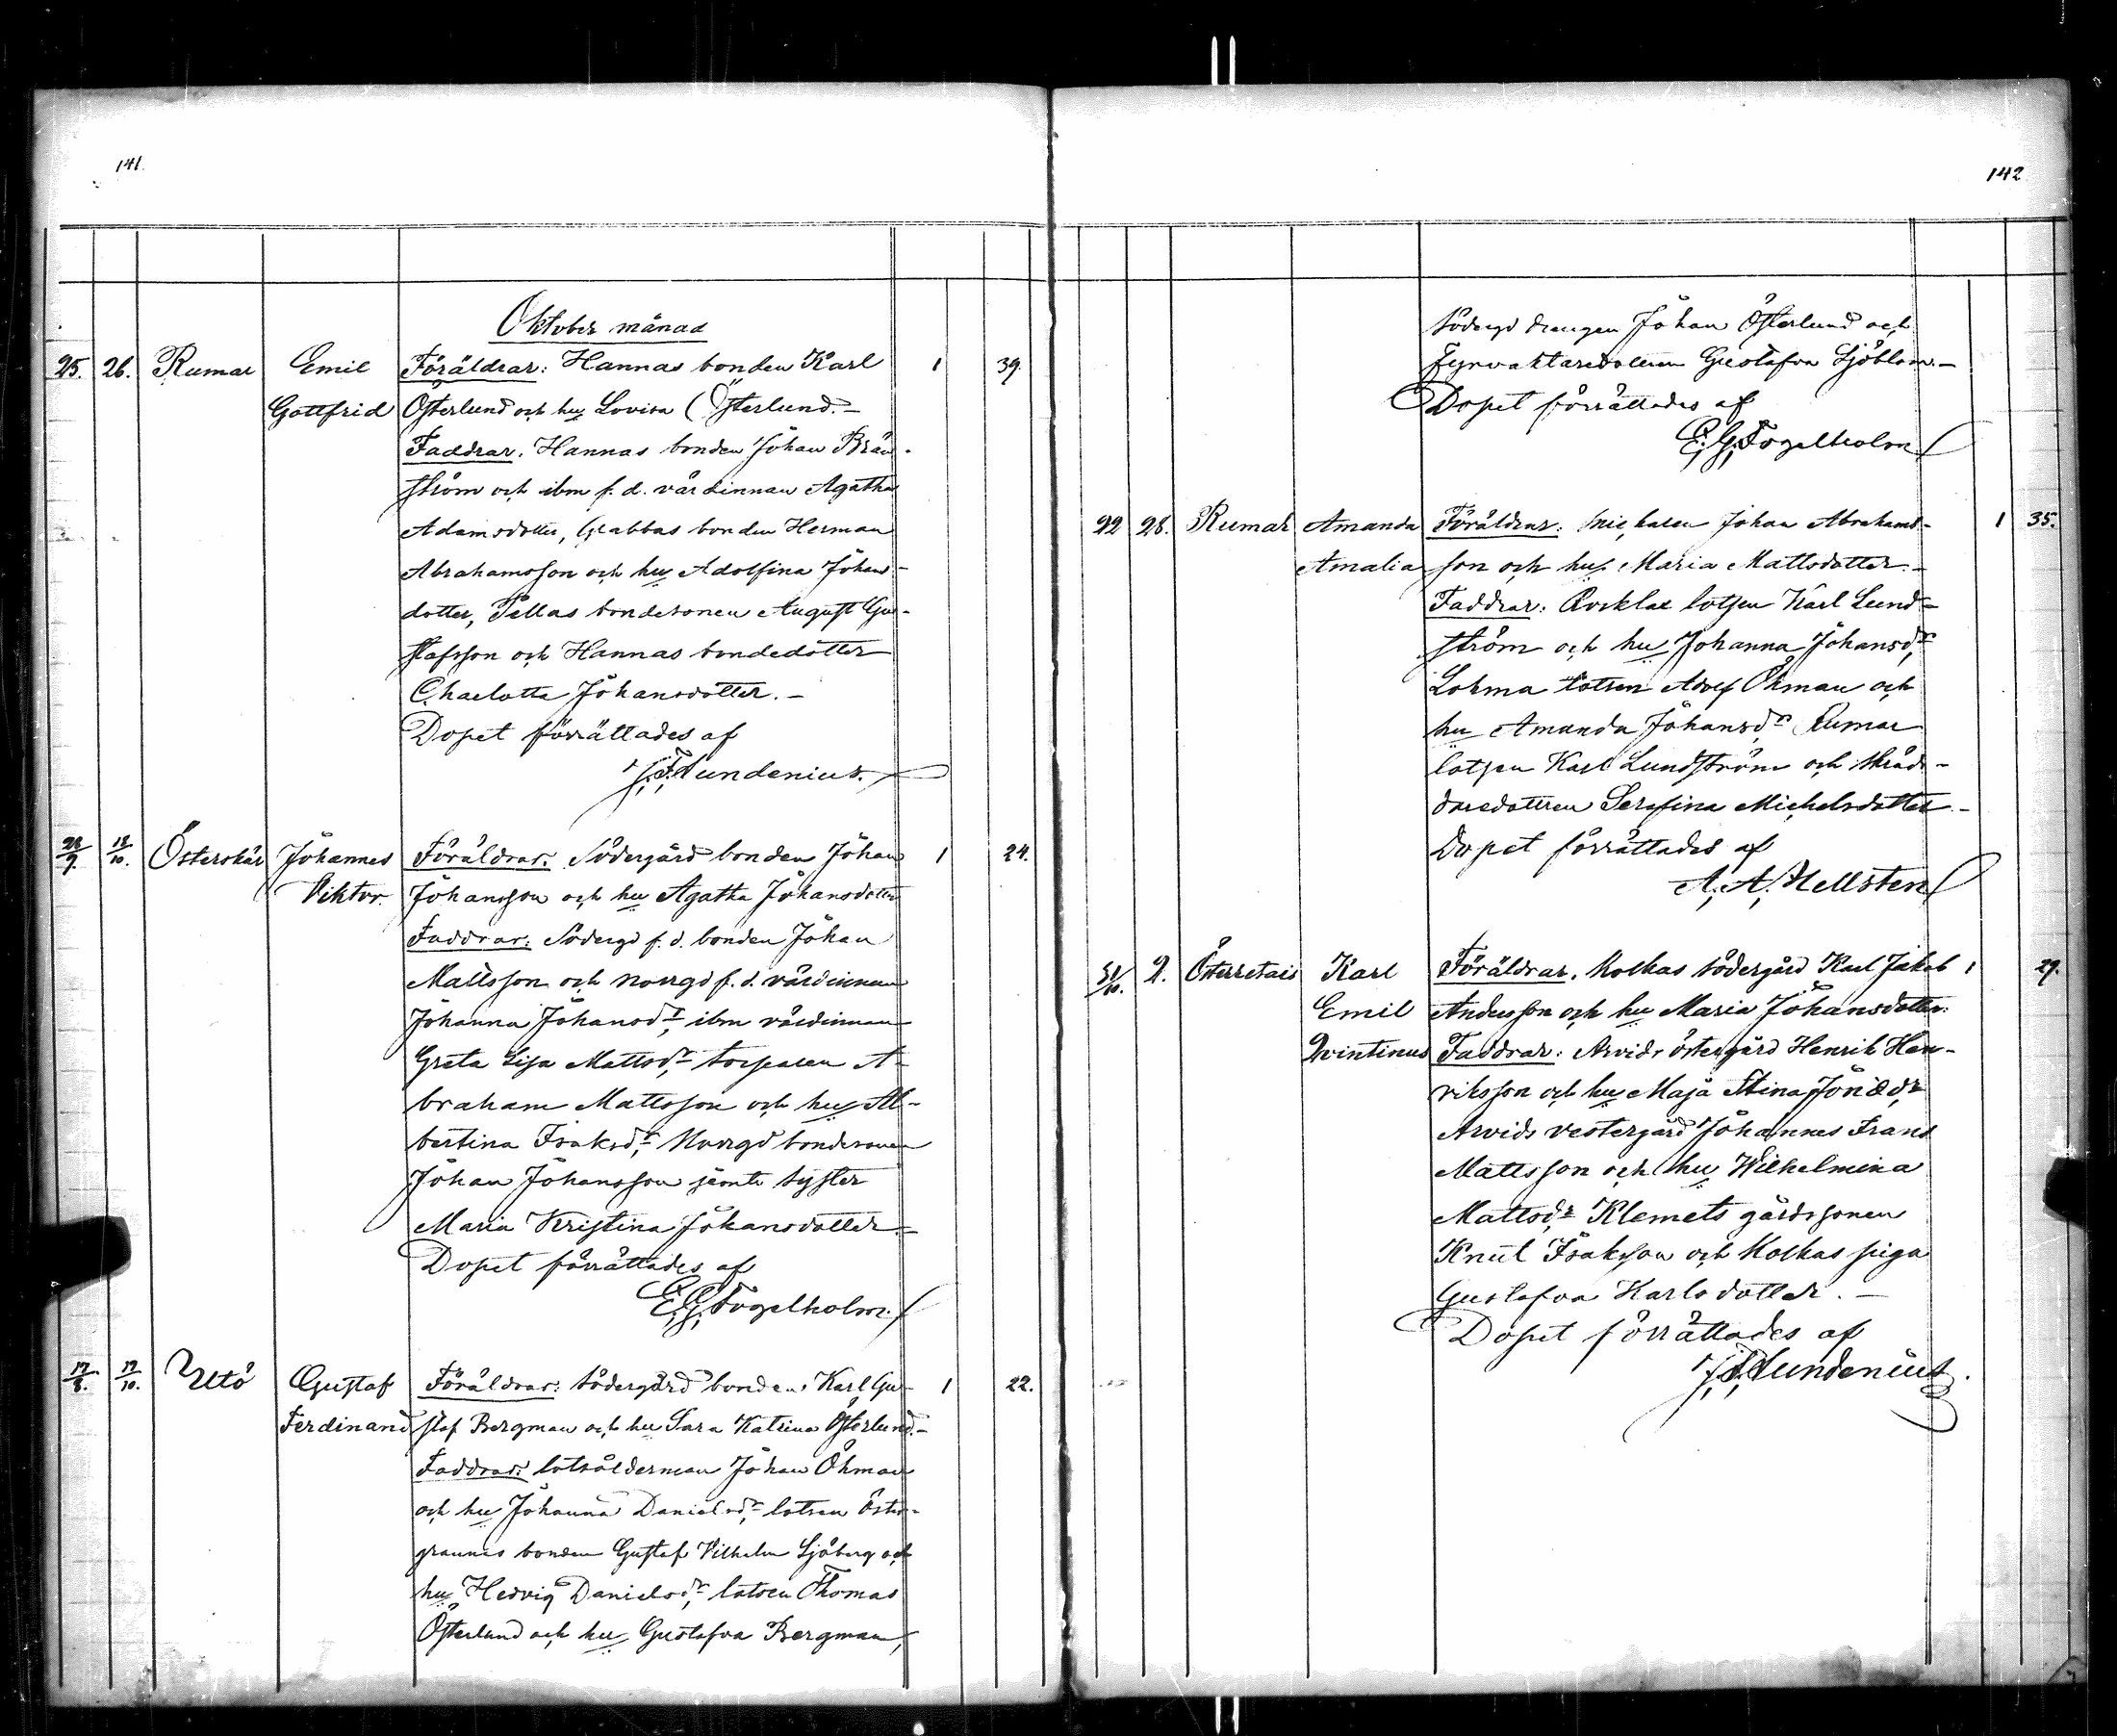 141.
Oktober månad
25. 26. Rumar Emil Föräldrar: Hannas bonden Karl 1 39.
Gottfrid Österlund och hu Lovisa Österlund.-
Faddrar. Hannas bonden Johan Brän-
ström och ibm f. d. värdinnan Agatha
Adamsdotter, Grabbas bonden Herman
Abrahamsson och hu Adolfina Johans-
dotter, Tellas bondesonen August Gu-
stafsson och Hannas bondedotter
Charlotta Johansdotter.-
Dopet förrättades af
Sundenius.
28/9. 12/10. Österskär Johannes Föräldrar. Södergård bonden Johan 1 24.
Viktor. Johansson och hu Agatha Johansdotter
Faddrar: Södergd f. d. bonden Johan
Mattsson och Norrgd f. d. värdinnan
Johanna Johansdr, ibm värdinnan
Greta Lisa Mattsdr, torparen A-
braham Mattsson och hu Al-
bertina Isaksdr, Norrgd bondesonen
Johan Johansson jämte syster
Maria Kristina Johansdotter.-
Dopet förrättades af
E. G. Fogelholm.
17/8. 17/10. Utö Gustaf Föräldrar: Södergård bonden Karl Gu- 1 22.
Ferdinand staf Bergman och hu Sara Katrina Österlund.-
Faddrar: lotsålderman Johan Öhman
och hu Johanna Danielsdr, lotsen Öster-
grannas bonden Gustaf Vilhelm Sjöberg och
hu Hedvig Danielsdr, lotsen Thomas
Österlund och hu Gustafva Bergman,
142
Södergd drengen Johan Österlund och
Fyrvaktaredottren Gustafva Sjöblom.-
Dopet förrättades af
E. G. Fogelholm
22 28. Rumar Amanda Föräldrar: Johan Abrahams- 1 35.
Amalia son och hu Maria Mattsdotter.-
Faddrar: Rosklax lotsen Karl Lund-
ström och hu Johanna Johansdr,
Lohma lotsen Adolf Öhman och
hu Amanda Johansdr, Rumar
lotsen Karl Lundström och skräd-
daredottren Serafina Michelsdotter.-
Dopet förrättades af
A. A. Hellsten
31/10. 2. Österretais Karl Föräldrar. Kolkas södergård Karl Jakob 1 29.
Emil Andersson och hu Maria Johansdotter.
Qvintinus Faddrar: Arvids östergård Henrik Hen-
riksson och hu Maja Stina
Arvids vestergård Johannes Frans
Mattsson och hu Wilhelmina
Mattsdr Klemets gårdssonen
Knut Isaksson och Kolkas piga
Gustafva Karlsdotter.-
Dopet förrättades af
Sundenius.